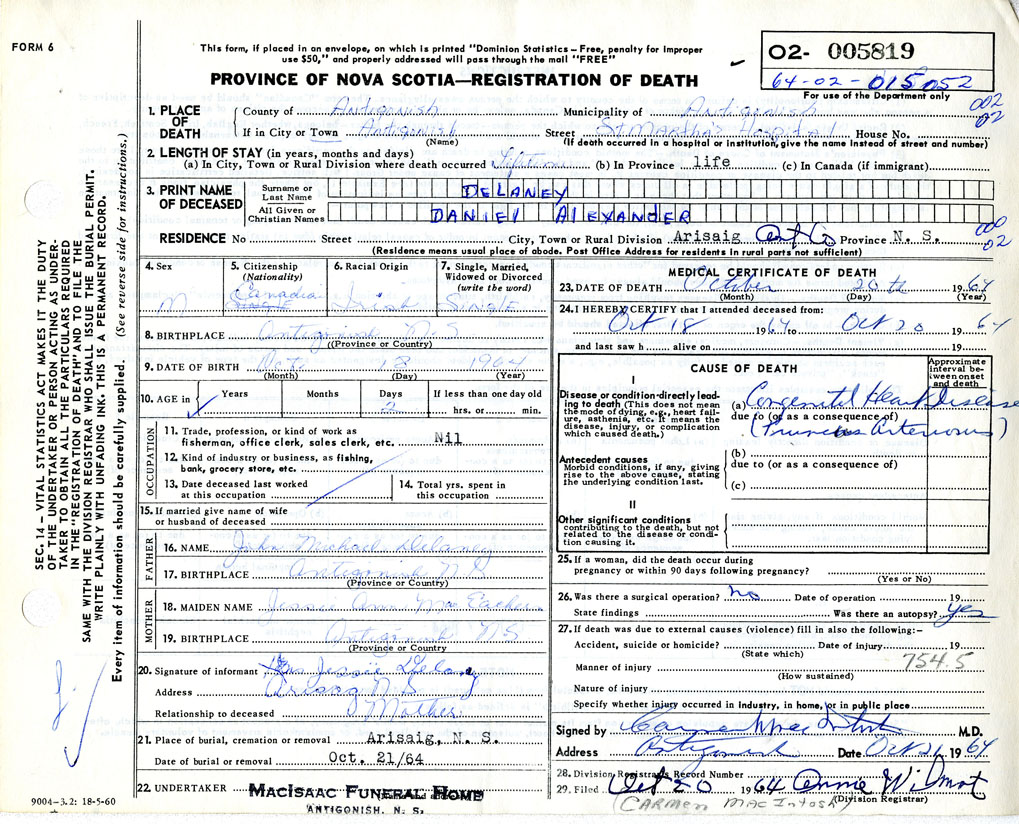 FORM 6
This form, if placed in an envelope, on which is printed "Dominion Statistics – Free, penalty for improper
use $50," and properly addressed will pass through the mail "FREE"
PROVINCE OF NOVA SCOTIA—REGISTRATION OF DEATH
O2- 005819
64-02-015052
For use of the Department only
002
02
1. PLACE OF DEATH
County of Antigonish Municipality of Antigonish
If in City or Town Antigonish Street St Martha's Hospital House No.
(Name) (If death occurred in a hospital or institution, give the name instead of street and number)
2. LENGTH OF STAY (in years, months and days)
(a) In City, Town or Rural Division where death occurred Lifetime (b) In Province life (c) In Canada (if immigrant)
3. PRINT NAME OF DECEASED
Surname or Last Name DELANEY
All Given or Christian Names DANIEL ALEXANDER
RESIDENCE No Street City, Town or Rural Division Arissig Province N. S.
000
02
(Residence means usual place of abode. Post Office Address for residents in rural parts not sufficient)
4. Sex M
5. Citizenship (Nationality) Canadian SINGLE
6. Racial Origin Irish
7. Single, Married, Widowed or Divorced (write the word) SINGLE
8. BIRTHPLACE Antigonish N.S
(Province or Country)
9. DATE OF BIRTH Oct 18 1964
(Month) (Day) (Year)
10. AGE in Years Months Days 2 If less than one day old hrs. or min.
OCCUPATION
11. Trade, profession, or kind of work as fisherman, office clerk, sales clerk, etc. Nil
12. Kind of industry or business, as fishing, bank, grocery store, etc.
13. Date deceased last worked at this occupation
14. Total yrs. spent in this occupation
15. If married give name of wife or husband of deceased
FATHER
16. NAME John Michael Delaney
17. BIRTHPLACE Antigonish N S
(Province or Country)
MOTHER
18. MAIDEN NAME Jessie Ann Mac Eachern
19. BIRTHPLACE Antigonish N S
(Province or Country)
20. Signature of informant Mrs Jessie Delaney
Address Arisaig N S
Relationship to deceased Mother
21. Place of burial, cremation or removal Arisaig, N. S.
Date of burial or removal Oct. 21/64
22. UNDERTAKER MACISAAC FUNERAL HOME
ANTIGONISH, N. S.
9004-3.2: 18-5-60
MEDICAL CERTIFICATE OF DEATH
23. DATE OF DEATH October 20th 1964
(Month) (Day) (Year)
24. I HEREBY CERTIFY that I attended deceased from:
Oct 18 1964 to Oct 20 1964
and last saw h alive on 19
CAUSE OF DEATH
Approximate interval between onset and death
I
Disease or condition directly leading to death (This does not mean the mode of dying, e.g., heart failure, asthenia, etc. It means the disease, injury, or complication which caused death.)
(a) Congenital Heart Disease
due to (or as a consequence of)
(Truncus Arteriosus)
Antecedent causes
Morbid conditions, if any, giving rise to the above cause, stating the underlying condition last.
(b)
due to (or as a consequence of)
(c)
II
Other significant conditions contributing to the death, but not related to the disease or condition causing it.
25. If a woman, did the death occur during pregnancy or within 90 days following pregnancy?
(Yes or No)
26. Was there a surgical operation? no Date of operation 19
State findings Was there an autopsy? yes
27. If death was due to external causes (violence) fill in also the following:–
Accident, suicide or homicide? Date of injury 19
(State which) 754.5
Manner of injury
(How sustained)
Nature of injury
Specify whether injury occurred in Industry, in home, or in public place
Signed by Carmen MacIntosh M.D.
Address Antigonish Date Oct 21 1964
28. Division Registrar's Record Number
29. Filed Oct 20 1964 Anne Wilmot
(Division Registrar)
(CARMEN MACINTOSH)
SEC. 14 – VITAL STATISTICS ACT MAKES IT THE DUTY
OF THE UNDERTAKER OR PERSON ACTING AS UNDER-
TAKER TO OBTAIN ALL THE PARTICULARS REQUIRED
IN THE "REGISTRATION OF DEATH" AND TO FILE THE
SAME WITH THE DIVISION REGISTRAR WHO SHALL ISSUE THE BURIAL PERMIT.
WRITE PLAINLY WITH UNFADING INK. THIS IS A PERMANENT RECORD.
Every item of information should be carefully supplied. (See reverse side for instructions.)